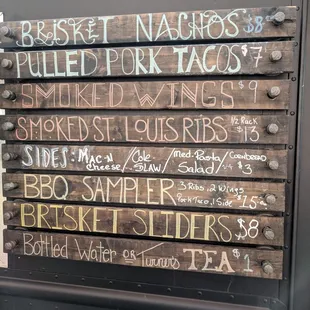 BRISKET NACHOS $8
PULLED PORK TACOS $7
SMOKED WINGS $9
SMOKED ST. LOUIS RIBS 1/2 Rack $13
SIDES: MAC N Cheese / Cole SLAW / Med. Pasta Salad / CORNBREAD $3
BBQ SAMPLER 3 Ribs, 2 Wings
Pork Taco, 1 Side $15
BRISKET SLIDERS $8
Bottled Water OR TEA $1